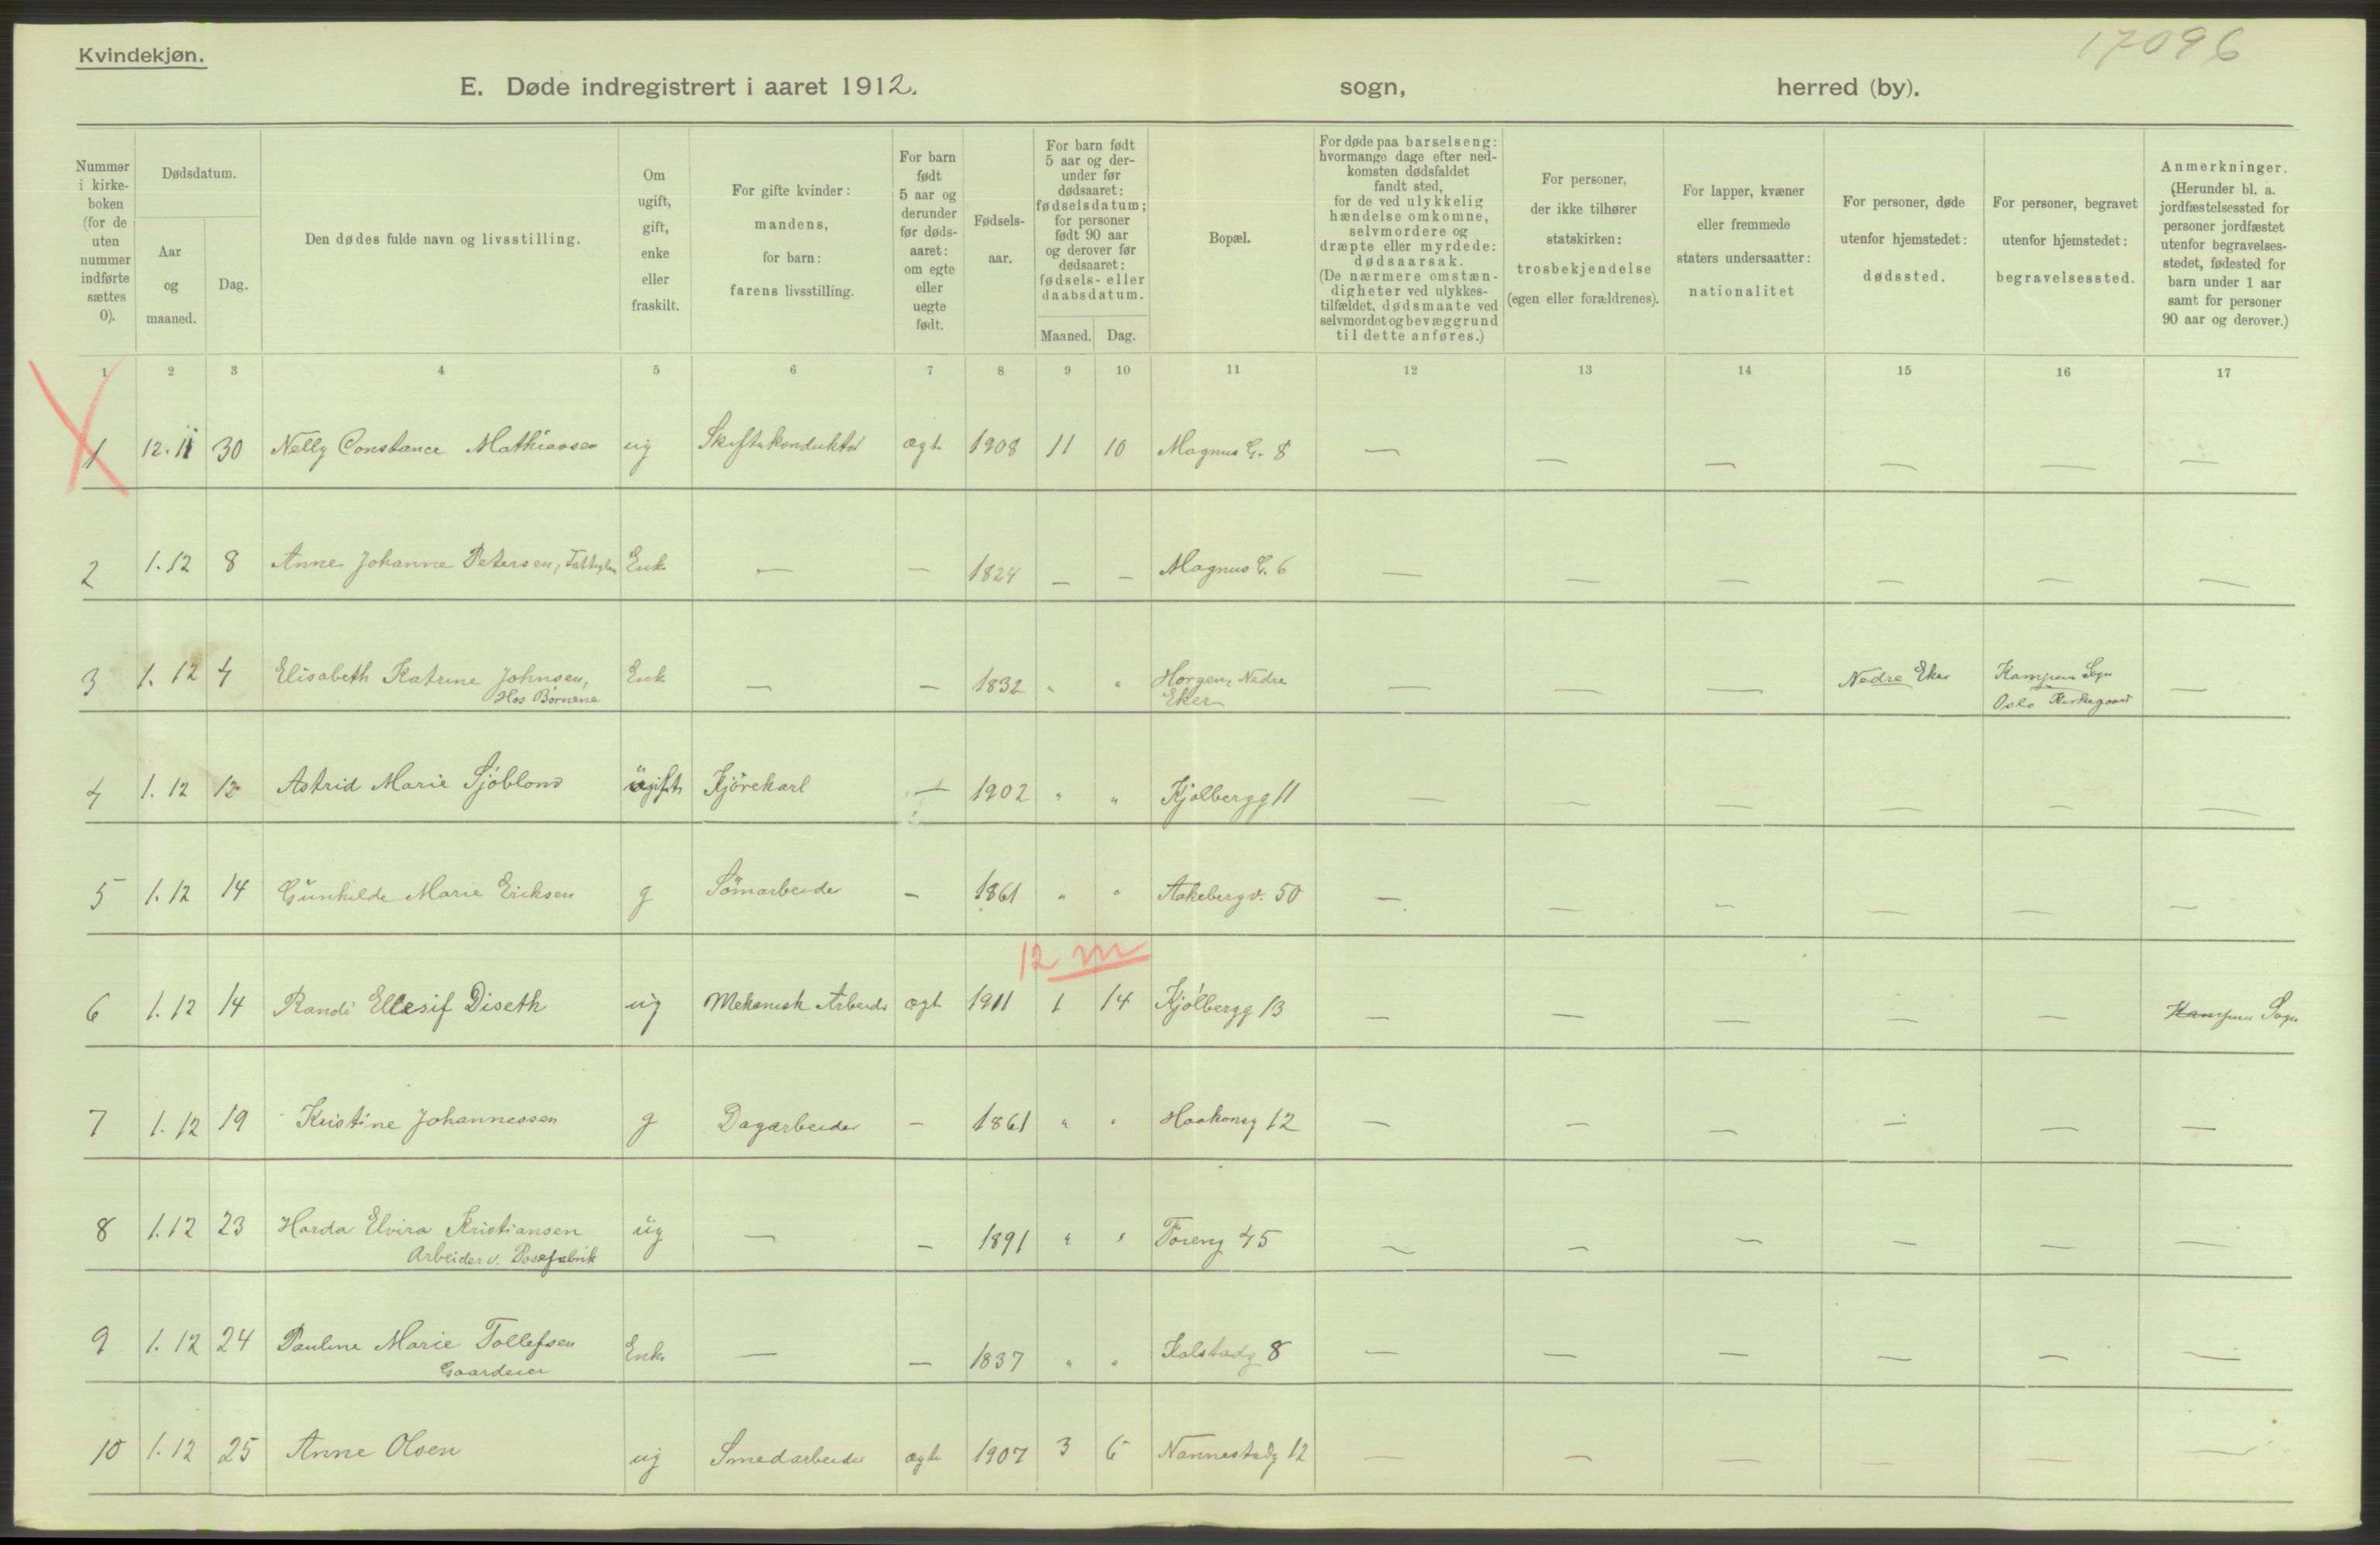 17096
Kvindekjøn.
E. Døde indregistrert i aaret 1912. sogn, herred (by).
Nummer i kirkeboken (for de uten nummer indførte sættes 0).
Dødsdatum.
Aar og maaned.
Dag.
Den dødes fulde navn og livsstilling.
Om ugift, gift, enke eller fraskilt.
For gifte kvinder: mandens, for barn: farens livsstilling.
For barn født 5 aar og derunder før dødsaaret: om egte eller uegte født.
Fødselsaar.
For barn født 5 aar og derunder før dødsaaret: fødselsdatum; for personer født 90 aar og derover før dødsaaret: fødsels- eller daabsdatum.
Maaned. Dag.
Bopæl.
For døde paa barselseng: hvormange dage efter nedkomsten dødsfaldet fandt sted, for de ved ulykkelig hændelse omkomne, selvmordere og dræpte eller myrdede: dødsaarsak. (De nærmere omstændigheter ved ulykkestilfældet, dødsmaate ved selvmordet og bevæggrund til dette anføres.)
For personer, der ikke tilhører statskirken: trosbekjendelse (egen eller forældrenes).
For lapper, kvæner eller fremmede staters undersaatter: nationalitet
For personer, døde utenfor hjemstedet: dødssted.
For personer, begravet utenfor hjemstedet: begravelsessted.
Anmerkninger. (Herunder bl. a. jordfæstelsessted for personer jordfæstet utenfor begravelsesstedet, fødested for barn under 1 aar samt for personer 90 aar og derover.)
1 2 3 4 5 6 7 8 9 10 11 12 13 14 15 16 17
1 12.11 30 Nelly Constance Mathiassen ug Skiftekonduktør ægte 1908 11 10 Magnus G. 8 — — — — — —
2 1.12 8 Anne Johanne Petersen, Enke — — 1824 — — Magnus G. 6 — — — — — —
3 1.12 4 Elisabeth Katrine Johnsen, Enke — — 1832 " " Horgen, Nedre — — — Nedre Eker Kampen Sogn —
Hos Börnene Eker Oslo Kirkegaard
4 1.12 12 Astrid Marie Sjöblom ugift Kjörekarl — 1902 " " Kjölbergg 11 — — — — — —
5 1.12 14 Gunhilde Marie Eriksen g Sömarbeider — 1861 " " Aakebergv. 50 — — — — — —
12 m
6 1.12 14 Randi Ellesif Diseth ug Mekanisk Arbeider ægte 1911 1 14 Kjölbergg 13 — — — — — Kampen Sogn
7 1.12 19 Kristine Johannessen g Dagarbeider — 1861 " " Haakonsg 12 — — — — — —
8 1.12 23 Harda Elvira Kristiansen ug — — 1891 " " Töieng 45 — — — — — —
Arbeider v. Posefabrik
9 1.12 24 Pauline Marie Tollefsen Enke — — 1837 " " Kolstadg 8 — — — — — —
Gaardeier
10 1.12 25 Anne Olsen ug Smedarbeider ægte 1907 3 6 Nannestadg 12 — — — — — —